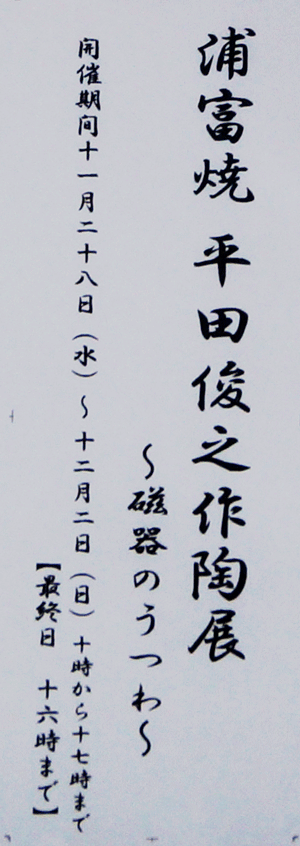 浦富焼 平田俊之作陶展
～磁器のうつわ～
開催期间十一月二十八日（水）～十二月二日（日）十時から十七時まで
【最終日 十六時まで】